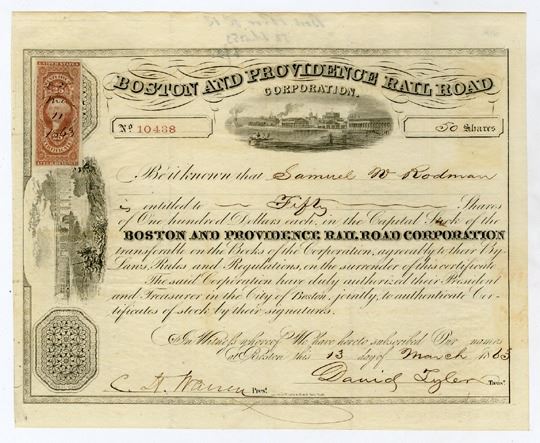 BOSTON AND PROVIDENCE RAIL ROAD
CORPORATION.
No 10438
50 Shares
Be it known that Samuel W Rodman
is entitled to Fifty Shares
of One hundred Dollars each, in the Capital Stock of the
BOSTON AND PROVIDENCE RAIL ROAD CORPORATION
transferable on the Books of the Corporation, agreeably to their By
Laws, Rules and Regulations, on the surrender of this certificate
The said Corporation have duly authorized their President
and Treasurer in the City of Boston, jointly, to authenticate Cer-
tificates of stock by their signatures.
In Witness whereof We have hereto subscribed Our names
at Boston this 13 day of March 1863
C. H. Warren Prest.
David Tyler Treasr.